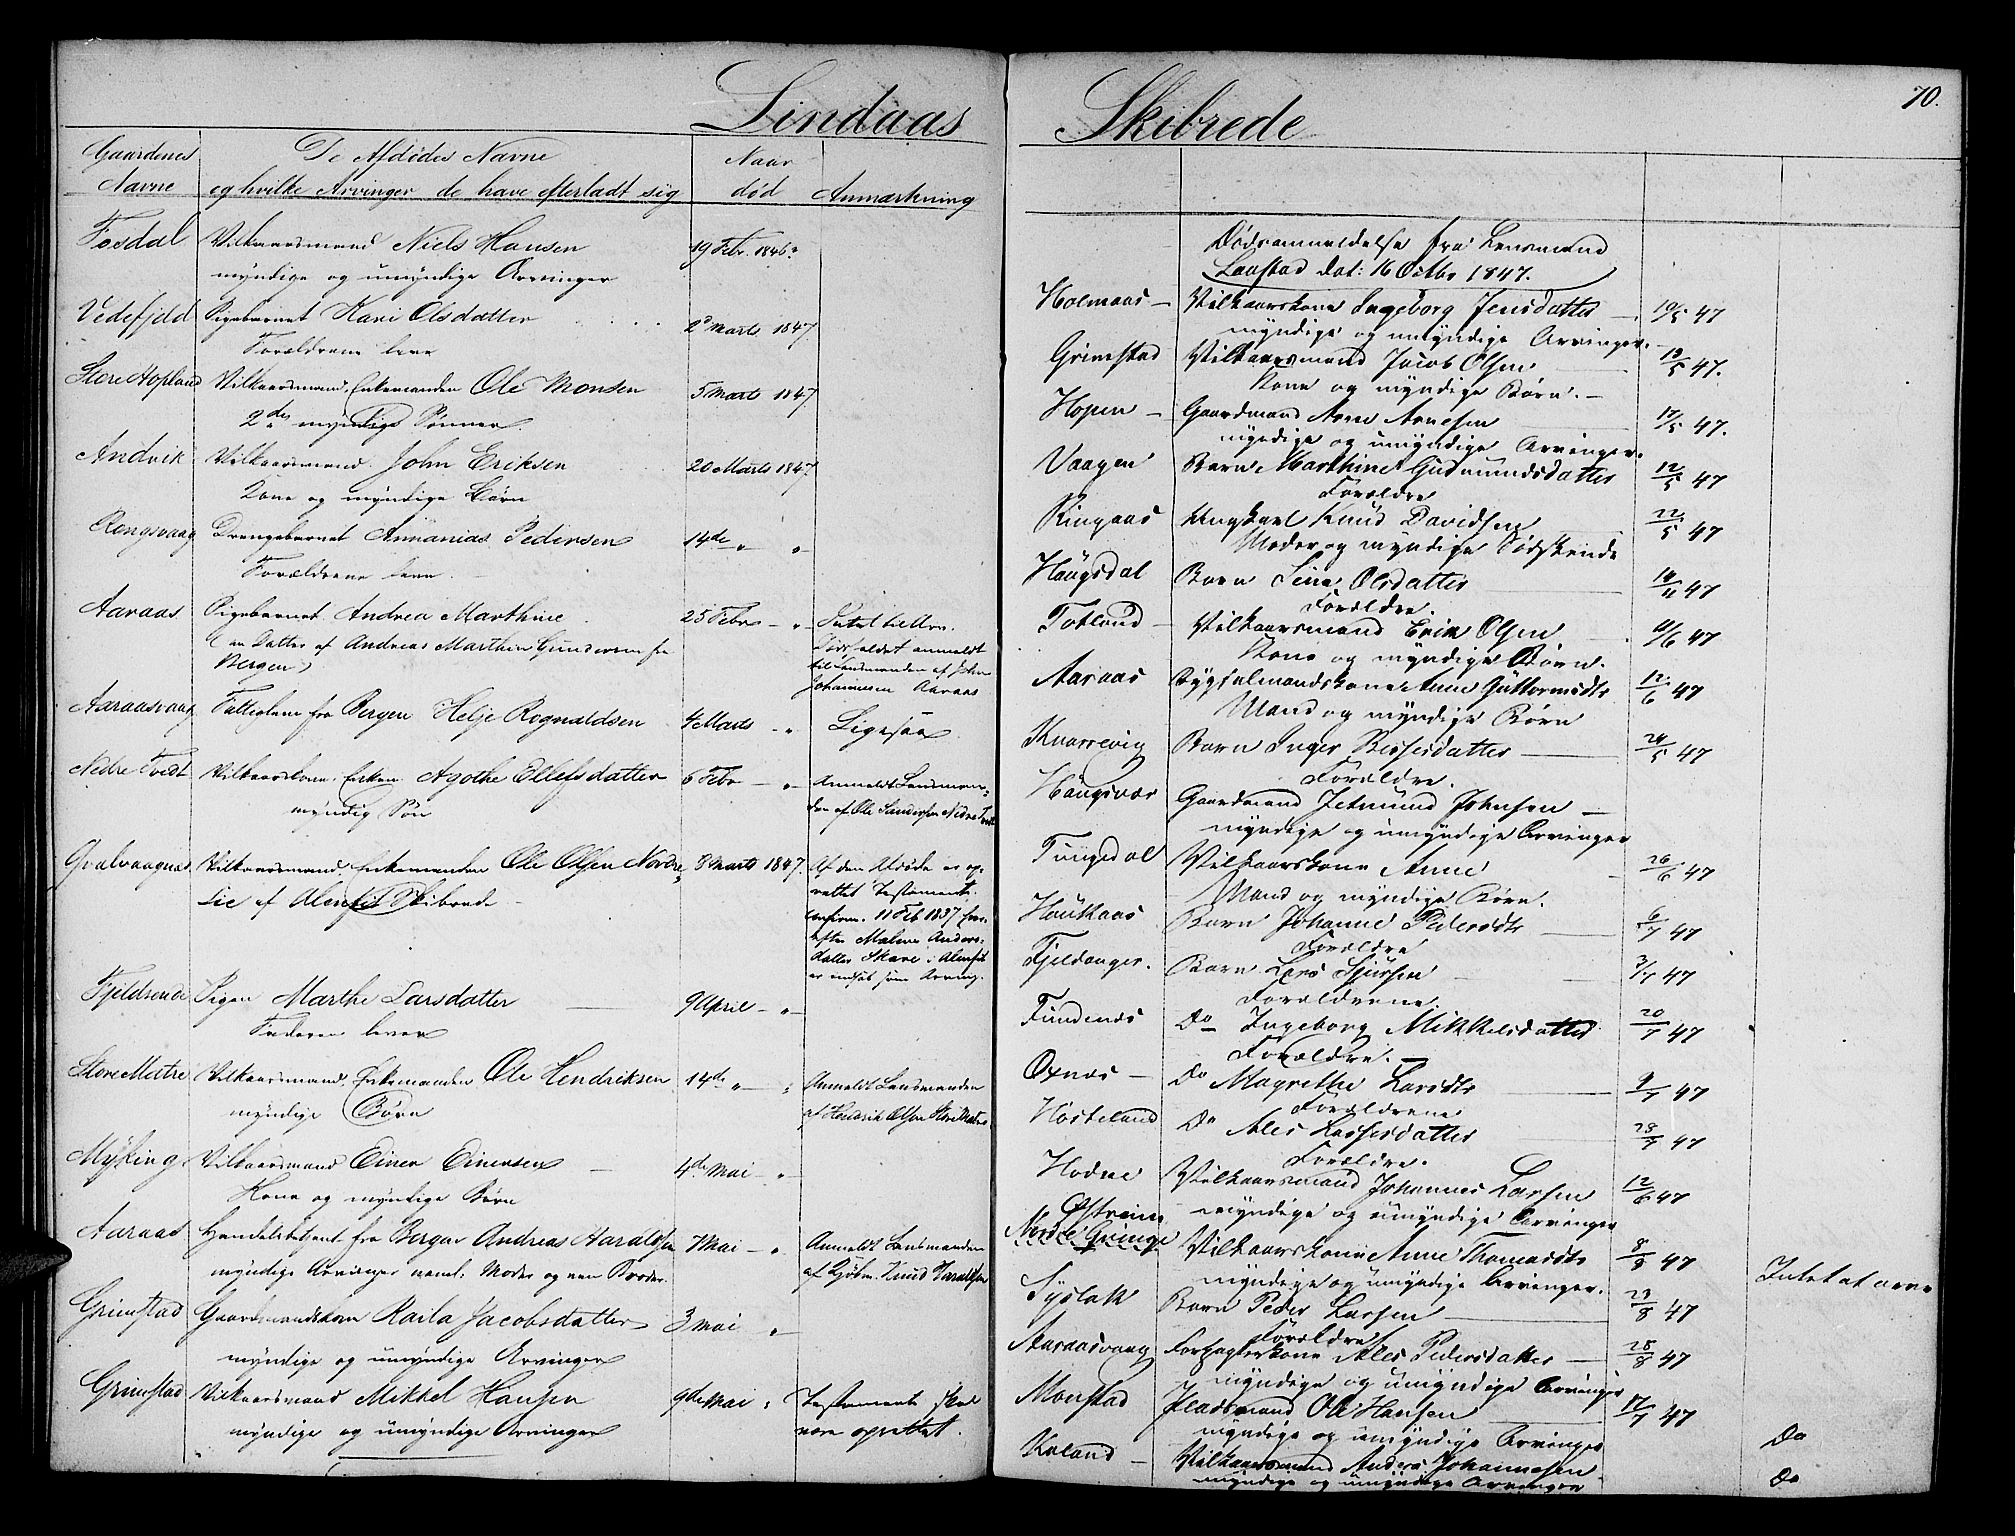 70.
Lindaas Skibrede
Gaardenes Navne
De Afdødes Navne
og hvilke Arvinger de have efterladt sig
Naar død
Anmærkning
Fosdal Vilkaarsmand Niels Hansen 19 Febr. 1846
myndige og umyndige Arvinger
Vedefjeld Pigebarnet Kari Olsdatter 2d Marts 1847
Forældrene leve
Store Hopland Vilkaarsmand, Enkemanden Ole Monsen 5 Marts 1847
2de myndige Sønner.
Andvik Vilkaarsmand John Eriksen 20 Marts 1847
Kone og myndige Børn
Rongevaag Drengebarnet Annanias Pedersen 14de " "
Forældrene leve.
Aaraas Pigebarnet Andrea Marthine 25 Febr - "
(en Datter af Andreas Marthin Gundersen fra
Bergen)
Intet
Dødsfaldet anmeldt
til Lensmanden af John
Johannesen Aaraas
Aaraasvaag Fattiglem fra Bergen Helje Rognaldsen 4 Marts - " Ligesaa
Nedre Tvedt Vilkaarskone, Enken Agothe Ellefsdatter 6 Febr - "
myndig Søn
Anmeldt Lensmanden
af Ole Sandersen Nedre Tvedt
Qvalvaagnæs Vilkaarsmand, Enkemanden Ole Olsen Nordre 8 Marts 1847.
Lie af Alenfit Skibrede
Af den Afdøde er op-
rettet Testamente,
confirm. 11 Feb 1837 hvor-
efter Malene Anders-
datter Skare i Alenfit
er indsat som Arving.
Fjeldsende Pigen Marthe Larsdatter 9 April - "
Faderen lever
Store Mettre Vilkaarsmand, Enkemanden Ole Hendriksen 14de " "
myndige Børn
Anmeldt Lensmanden
af Hendrik Olsen Store Mettre
Myking Vilkaarsmand Einer Einersen 4de Mai - "
Kone og myndige Børn
Aaraas Handelsbetjent fra Bergen Andreas Haraldsen 7 Mai - "
myndige Arvinger neml. Moder og een Broder.
Anmeldt Lensmanden
af Kjøbm. Knud Haraldsen
Grimstad Gaardmandskone Raila Jacobsdatter 3 Mai "
myndige og umyndige Arvinger
Grimstad Vilkaarsmand Mikkel Hansen 9de Mai "
myndige og umyndige Arvinger
Testamente skal
være oprettet.
Dødsanmeldelse fra Lensmand
Laastad dat: 16 Octbr 1847.
Holmaas - Vilkaarskone Ingeborg Jensdatter 10/5 47
myndige og umyndige Arvinger.
Grimstad Vilkaarsmand Jacob Olsen 13/5 47.
Kone og myndige Børn. -
Hopen - Gaardmand Arne Arnesen 17/5 47.
myndige og umyndige Arvinger.
Vaagen Barn Marthine Gudmundsdatter 12/5 47
Forældre
Ringaas Ungkarl Knud Davidsen 22/5 47
Moder og myndige Sødskende
Haugsdal Barn Sina Olsdatter 47
Forældre.
Totland Vilkaarsmand Erik Olsen /6 47
Kone og myndige Børn.
Aaraas Bygselmandskone Anne Guttormsdtr 12/6 47
Mand og myndige Børn
Knarrevig Barn Inger Bessesdatter 24/5 47
Forældre.
Haugsvær Gaardmand Jetmund Johnsen -
myndige og umyndige Arvinger
Tungedal Vilkaarskone Anne 26/6 47
Mand og myndige Børn.
Haukaas Barn Johanne Pedersdtr 6/7 47
Forældre
Fjeldanger. Barn Lars Sjursen 3/7 47
Forældrene.
Fundenes Do Ingeborg Mikkelsdatter 20/7 47
Forældre. -
Oxnæs - Do Magrethe Larsdtr 9/7 47
Forældrene
Hosteland Do Ales Lassesdatter 28/7 47
Forældre.
Hodne Vilkaarsmand Johannes Larsen 12/6 47
myndige og umyndige Arvinger
Østreim
Nordre Qvinge Vilkaarskone Anne Thomasdtr 8/8 47
myndige og umyndige Arvinger.
Syslak Barn Peder Larsen 23/8 47 Intet at arve
Forældre
Aaraasvaag Forpagterkone Ales Pedersdatter - 28/8 47
myndige og umyndige Arvinger
Monstad Pladsmand Ole Hansen 17/7 47
myndige og umyndige Arvinger Do
Keland - Vilkaarsmand Anders Johannesen
myndige og umyndige Arvinger Do